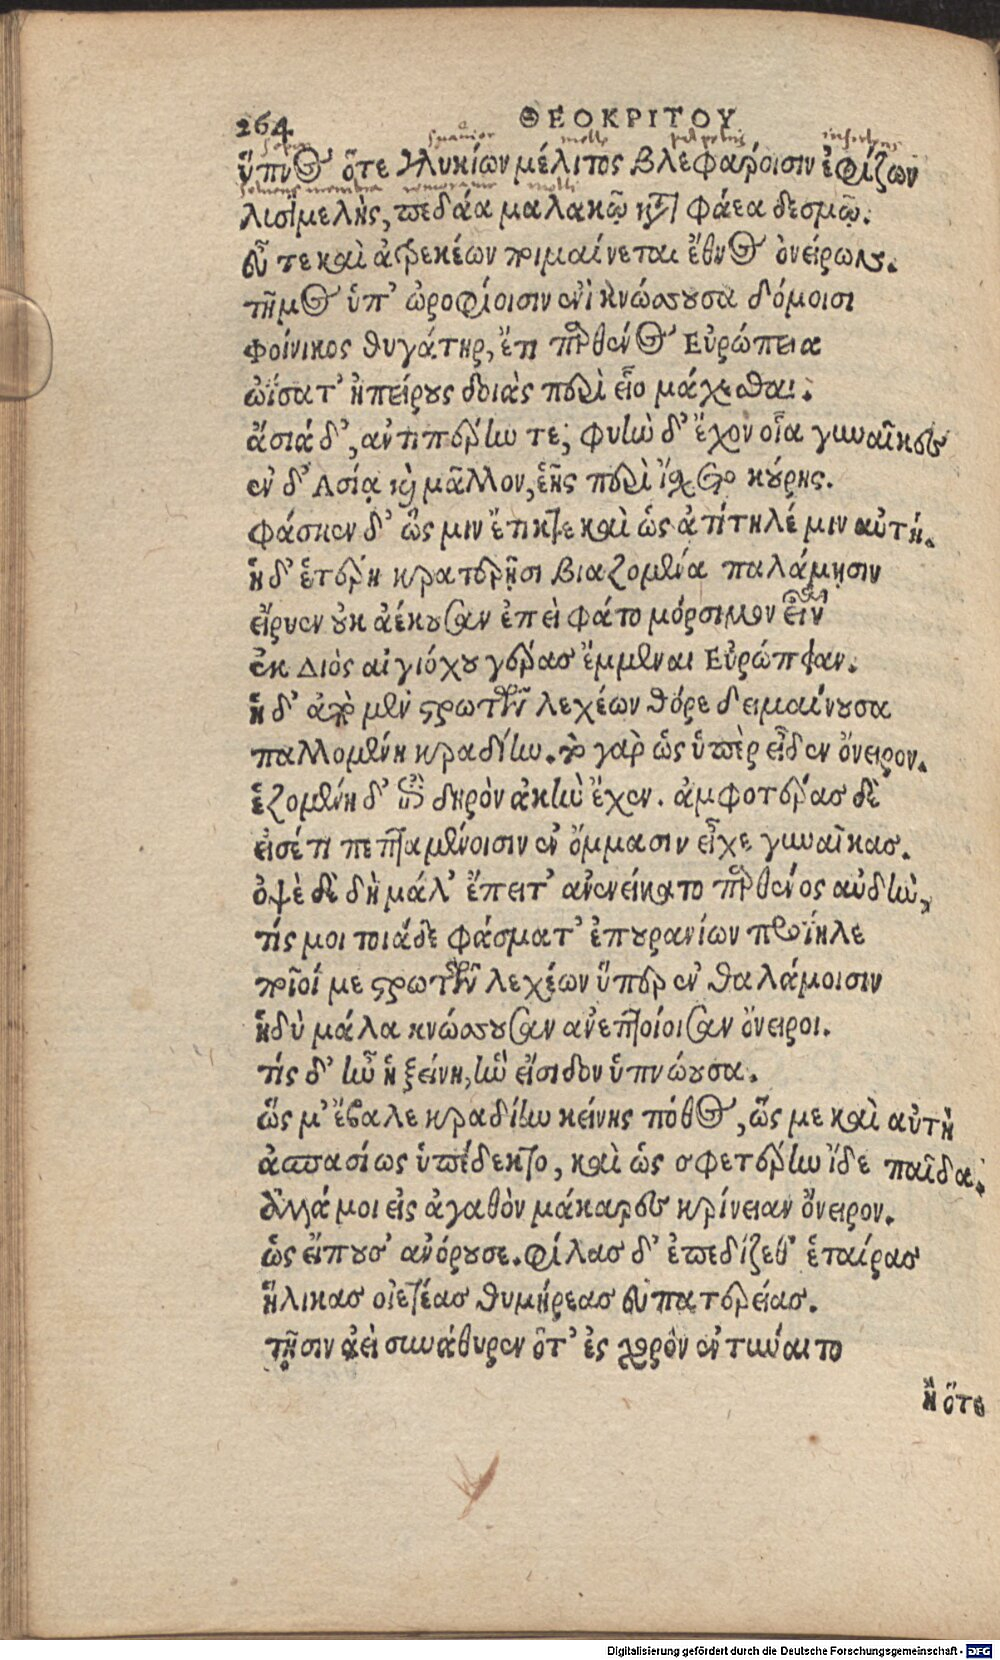 264 ΘΕΟΚΡΙΤΟΥ
sopor suauior melle palpebris insidens
ὕπνος ὅτε γλυκίων μέλιτος βλεφάροισιν ἐφίζων
soluens membra molli
λισιμελὴς, πεδάα μαλακῷ κατὰ φάεα δεσμῷ.
εὖ τε καὶ ἀτρεκέων ποιμαίνεται ἔθνος ὀνείρων.
τῆμος ὑπ' ὠροφίοισιν ἐνὶ κνώσσουσα δόμοισι
Φοίνικος θυγάτηρ, ἔτι παρθένος Εὐρώπεια
ὠΐσατ' ἠπείρους δοιὰς περὶ εἷο μάχεσθαι.
ἀσιάδ', ἀντιπέρην τε, φυὴν δ' ἔχον οἷα γυναῖκες
ἐν δ' Ασίᾳ καὶ μᾶλλον, ἑῆς περὶ ἴσχετο κούρης.
Φάσκεν δ' ὥς μιν ἔτικτε καὶ ὡς ἀτίτηλέ μιν αὐτή.
ἡ δ' ἑτέρη κρατερῇσι βιαζομένα παλάμῃσιν
εἴρυεν οὐκ ἀέκουσαν ἐπεὶ φάτο μόρσιμον εἶναι
ἐκ Διὸς αἰγιόχου γέρας ἔμμεναι Εὐρώπειαν.
ἡ δ' ἀπὸ μὲν στρωτῶν λεχέων θόρε δειμαίνουσα
παλλομένη κραδίην. τὸ γὰρ ὡς ὕπὲρ εἶδεν ὄνειρον.
ἑζομένη δ' ἐπὶ δηρὸν ἀκὴν ἔχεν. ἀμφοτέρας δὲ
εἰσέτι πεπταμένοισιν ἐν ὄμμασιν εἶχε γυναῖκας.
ὀψὲ δὲ δὴ μάλ' ἔπειτ' ἀνενείκατο παρθένος αὐδὴν,
τίς μοι τοιάδε φάσματ' ἐπουρανίων προΐηλε
ποῖοί με στρωτῶν λεχέων ὕπερ ἐν θαλάμοισιν
ἡδὺ μάλα κνώσσουσαν ἀνεπτοίοισαν ὄνειροι.
τίς δ' ἦν ἡ ξείνη, ἣν εἴσιδον ὑπνώουσα.
ὥς μ' ἔβαλε κραδίην κείνης πόθος, ὥς με καὶ αὐτὴ
ἀσπασίως ὑπέδεκτο, καὶ ὡς σφετέρην ἴδε παῖδα.
ἀλλά μοι εἰς ἀγαθὸν μάκαρες κρίνειαν ὄνειρον.
ὡς εἴπουσ' ἀνόρουσε. φίλας δ' ἐπεδίζεθ' ἑταίρας
ἥλικας οἰετέας θυμήρεας εὐπατερείας.
τῇσιν ἀεὶ συνάθυρεν ὅτ' ἐς χορὸν ἐντύναιτο
ἢ ὅτε
Digitalisierung gefördert durch die Deutsche Forschungsgemeinschaft - DFG